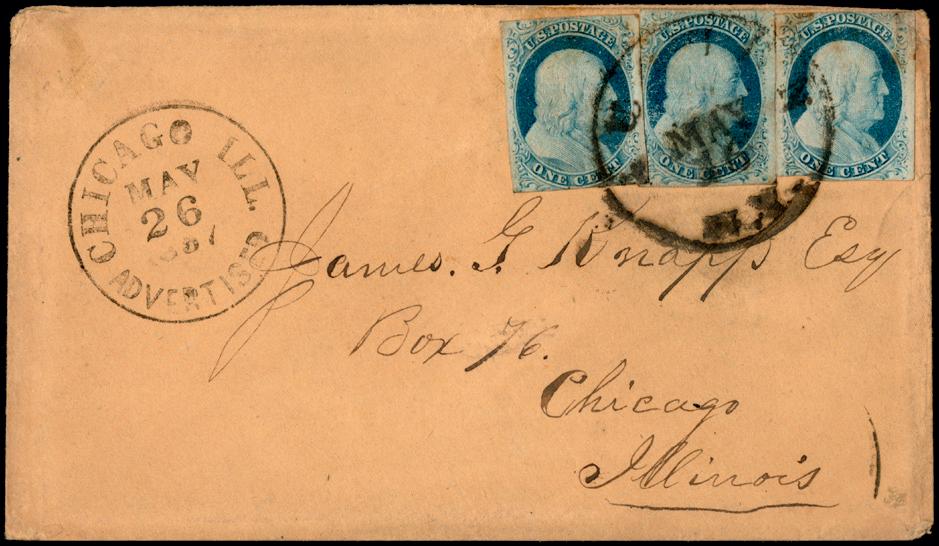 U.S.POSTAGE
ONE CENT
U.S.POSTAGE
ONE CENT
U.S.POSTAGE
ONE CENT
MAY
N.Y.
CHICAGO ILL.
MAY
26
ADVERTISED
James. G Knapp Esq
Box 76.
Chicago
Illinois